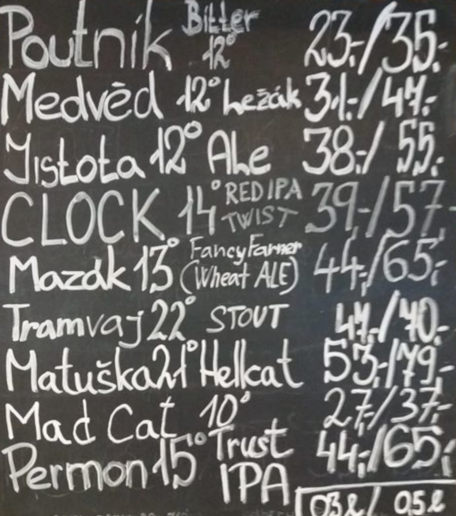 Poutník Bitter 12° 23,-/35,-
Medvěd 12° Ležák 31,-/47,-
Jistota 12° Ale 38,-/55,-
CLOCK 14° RED IPA TWIST 39,-/57,-
Mazák 13° Fancy Farmer (Wheat ALE) 44,-/65,-
Tramvaj 22° STOUT /40,-
Matuška 21° Hellcat 53,-/79,-
Mad Cat 10° 27,-/37,-
Permon 15° Trust IPA 44,-/65,-
0,3l / 0,5l